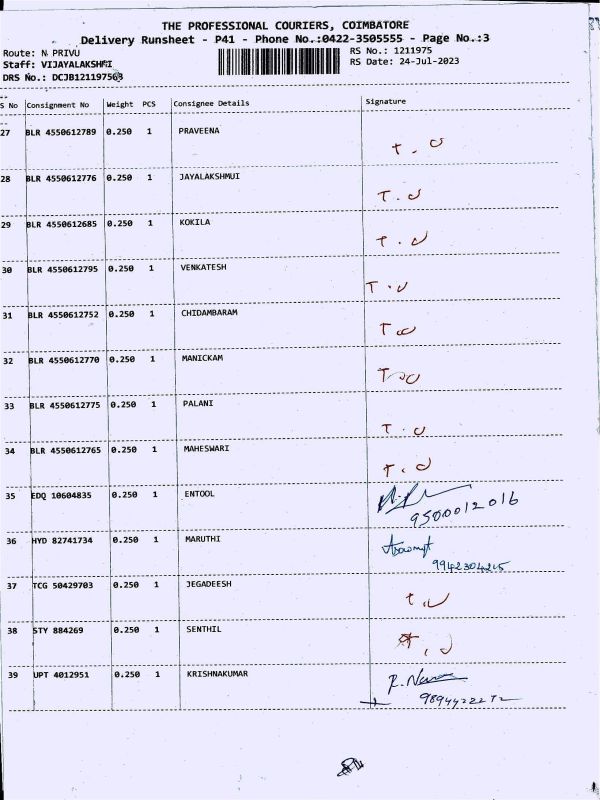 THE PROFESSIONAL COURIERS, COIMBATORE
Delivery Runsheet - P41 - Phone No.:0422-3505555 - Page No.:3
Route: N PRIVU RS No.: 1211975
Staff: VIJAYALAKSHMI RS Date: 24-Jul-2023
DRS No.: DCJB121197563
S No Consignment No Weight PCS Consignee Details Signature
27 BLR 4550612789 0.250 1 PRAVEENA T.U
28 BLR 4550612776 0.250 1 JAYALAKSHMUI T.U
29 BLR 4550612685 0.250 1 KOKILA T.U
30 BLR 4550612795 0.250 1 VENKATESH T.U
31 BLR 4550612752 0.250 1 CHIDAMBARAM
32 BLR 4550612770 0.250 1 MANICKAM
33 BLR 4550612775 0.250 1 PALANI T.U
34 BLR 4550612765 0.250 1 MAHESWARI T.U
35 EDQ 10604835 0.250 1 ENTOOL
9500012016
36 HYD 82741734 0.250 1 MARUTHI
37 TCG 50429703 0.250 1 JEGADEESH T.U
38 STY 884269 0.250 1 SENTHIL
39 UPT 4012951 0.250 1 KRISHNAKUMAR